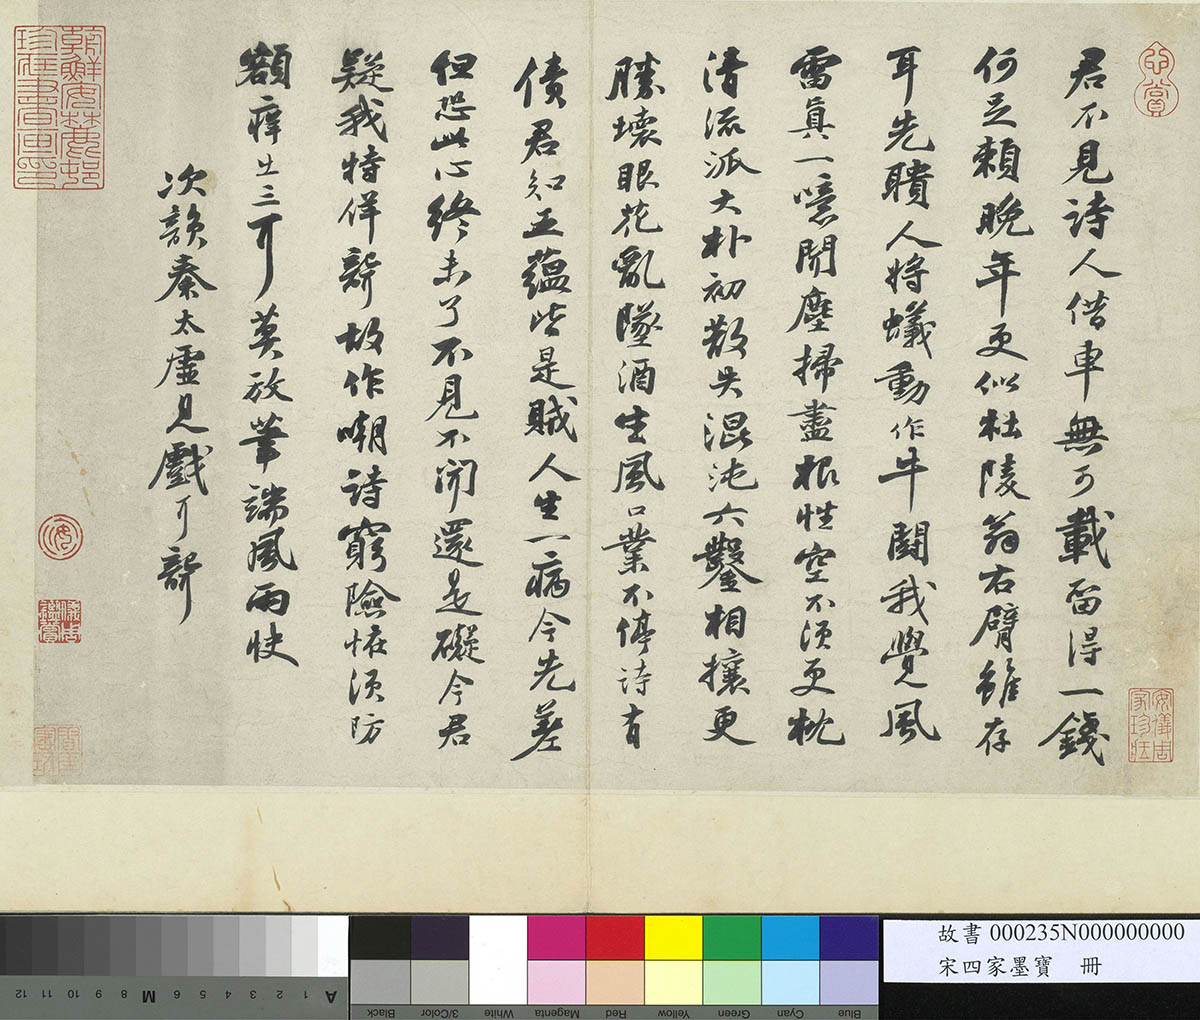 心賞
君不見詩人借車無可載留得一錢
何足賴晚年更似杜陵翁右臂雖存
耳先聵人將蟻動作牛鬪我覺風
雷真一噫聞塵掃盡根性空不須更枕
清流派大朴初散失混沌六鑿相攘更
勝壞眼花亂墜酒生風口業不停詩有
債君知五蘊皆是賊人生一病今先差
但恐此心終未了不見不聞還是礙今君
疑我特佯聾故作嘲詩窮險怪須防
額癢出三耳莫放筆端風雨快
次韻秦太虛見戲耳聾
安儀周家珍藏
朝鮮安麓邨珍藏書畫印
安
儀周鑑賞
故書 000235N000000000
宋四家墨寶 冊
A 1 2 3 4 5 6 M 8 9 10 11 12
Blue Cyan Green Yellow Red Magenta White 3/Color Black